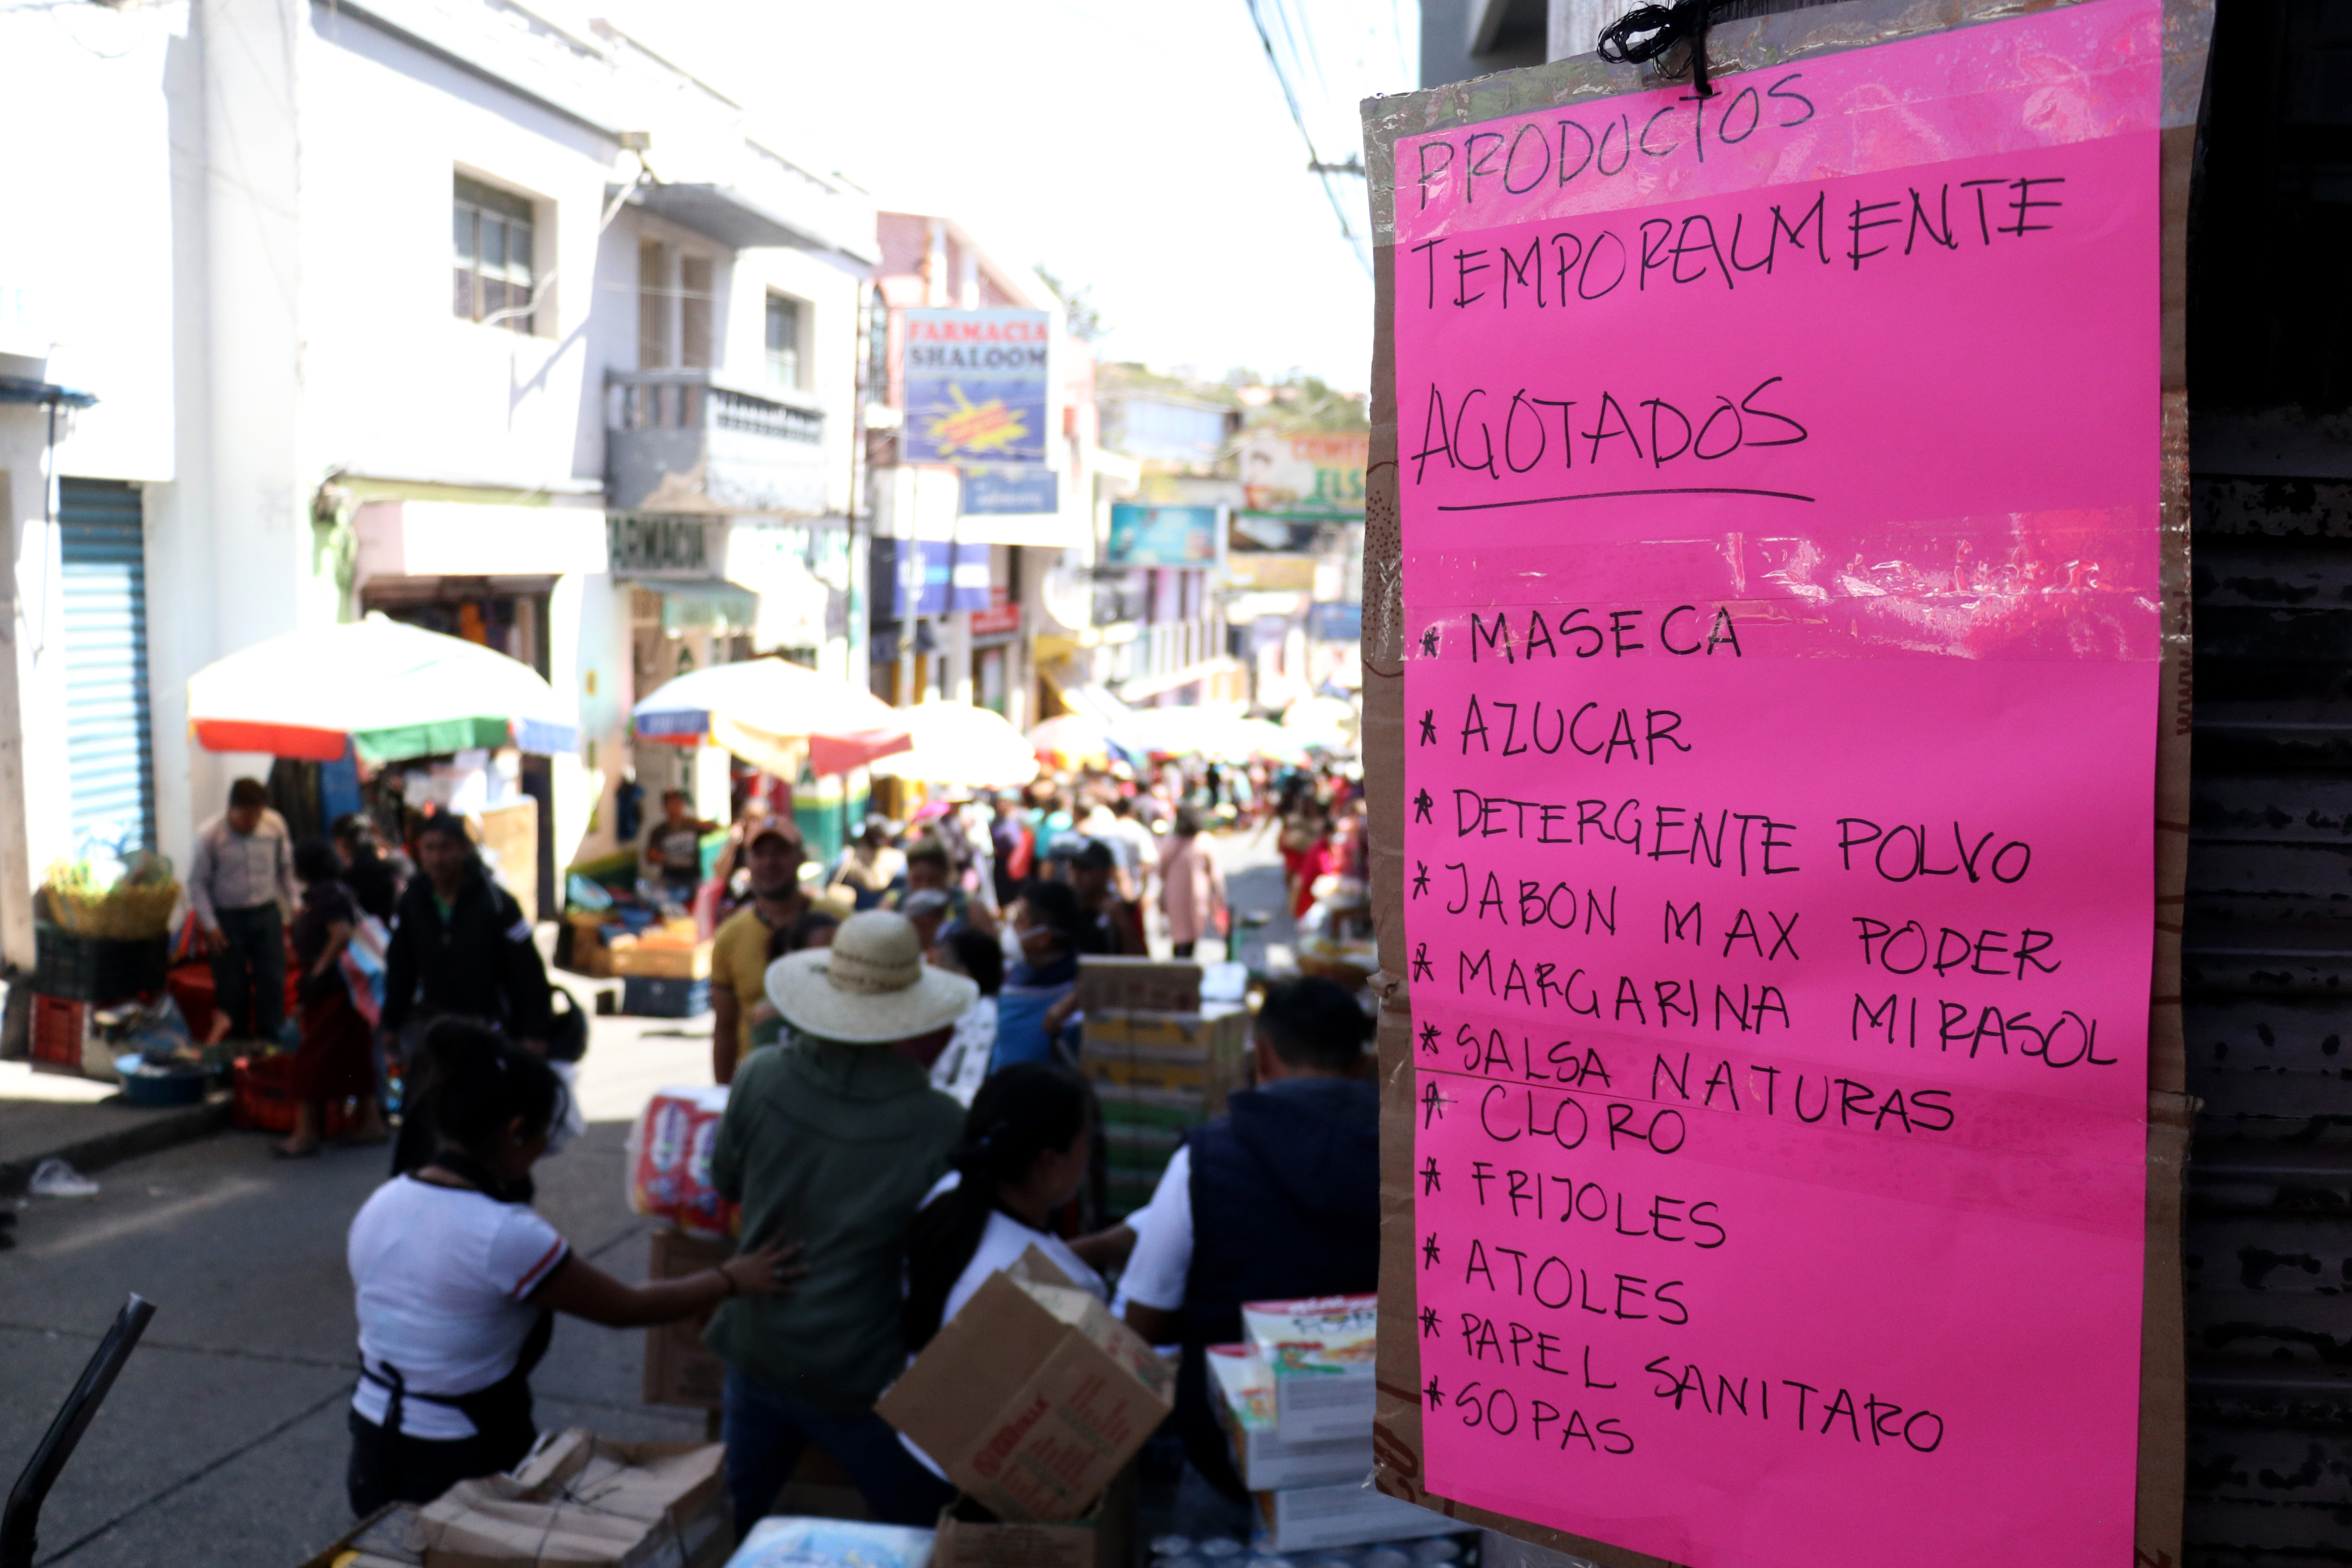 PRODUCTOS
TEMPORALMENTE
AGOTADOS
* MASECA
* AZUCAR
* DETERGENTE POLVO
* JABON MAX PODER
* MARGARINA MIRASOL
* SALSA NATURAS
* CLORO
* FRIJOLES
* ATOLES
* PAPEL SANITARO
* SOPAS
FARMACIA
SHALOOM
FARMACIA